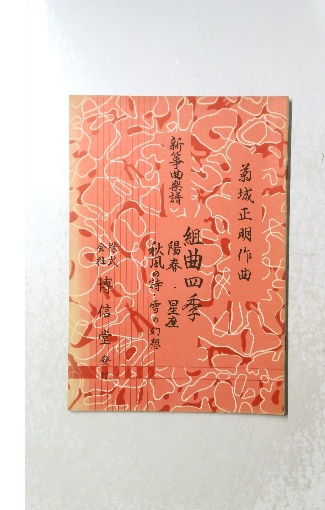 菊城正明作曲
新箏曲楽譜
組曲四季
陽春・星座
秋風の詩・雪の幻想
株式会社 博信堂 発行